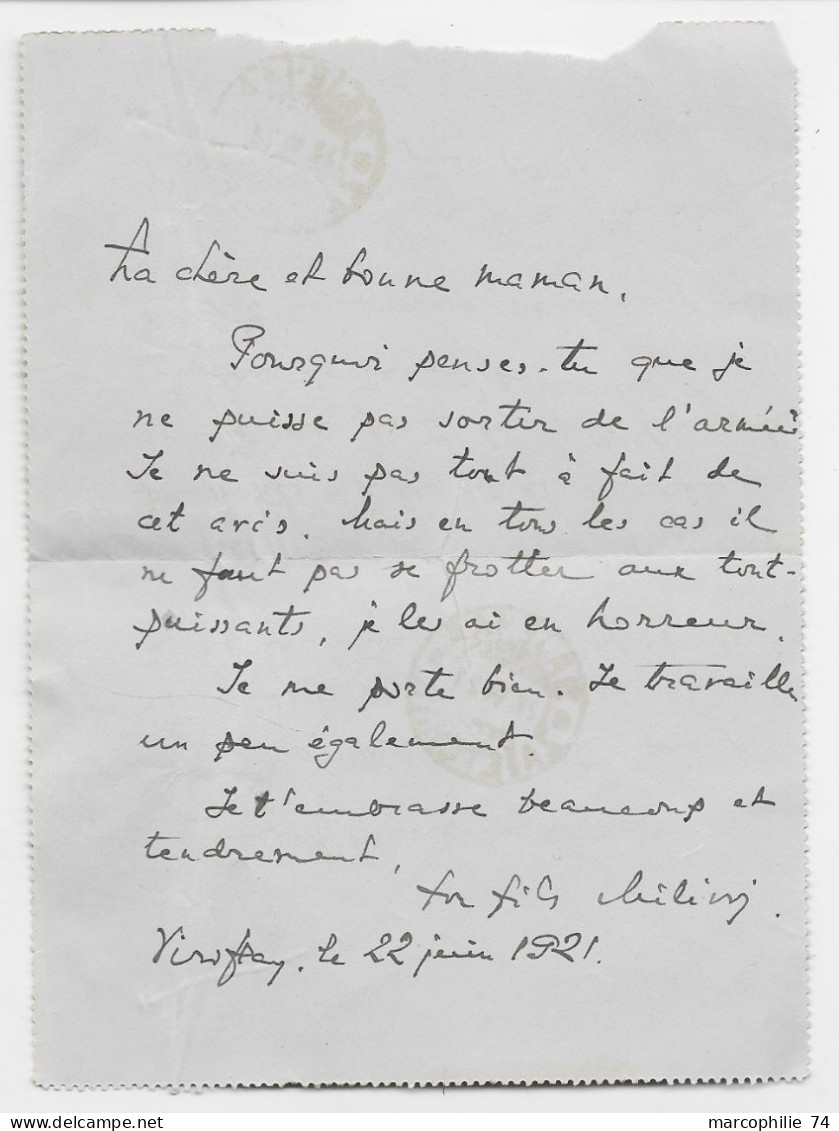 Ma chère et bonne maman,
Pourquoi penses-tu que je
ne puisse pas sortir de l'armée
Je ne suis pas tout à fait de
cet avis. Mais en tous les cas il
ne faut pas se frotter aux tout-
puissants, je les ai en horreur.
Je me porte bien. Je travaille
un peu également.
Je t'embrasse beaucoup et
tendrement,
ton fils
Viroflay, le 22 juin 1921.
marcophilie 74